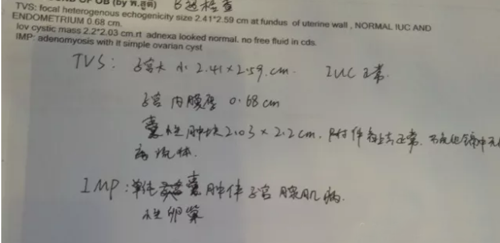 OF OB (by พ.สูติ) B超检查
TVS: focal heterogenous echogenicity size 2.41*2.59 cm at fundus of uterine wall , NORMAL IUC AND
ENDOMETRIUM 0.68 cm.
lov cystic mass 2.2*2.03 cm.rt adnexa looked normal. no free fluid in cds.
IMP: adenomyosis with lt simple ovarian cyst
TVS: 子宫大小 2.41×2.59 cm. IUC 正常.
子宫内膜厚 0.68 cm
囊性肿块 2.03 × 2.2 cm. 右附件看上去正常.
液体.
IMP: 单纯 囊肿伴子宫腺肌病.
性卵巢